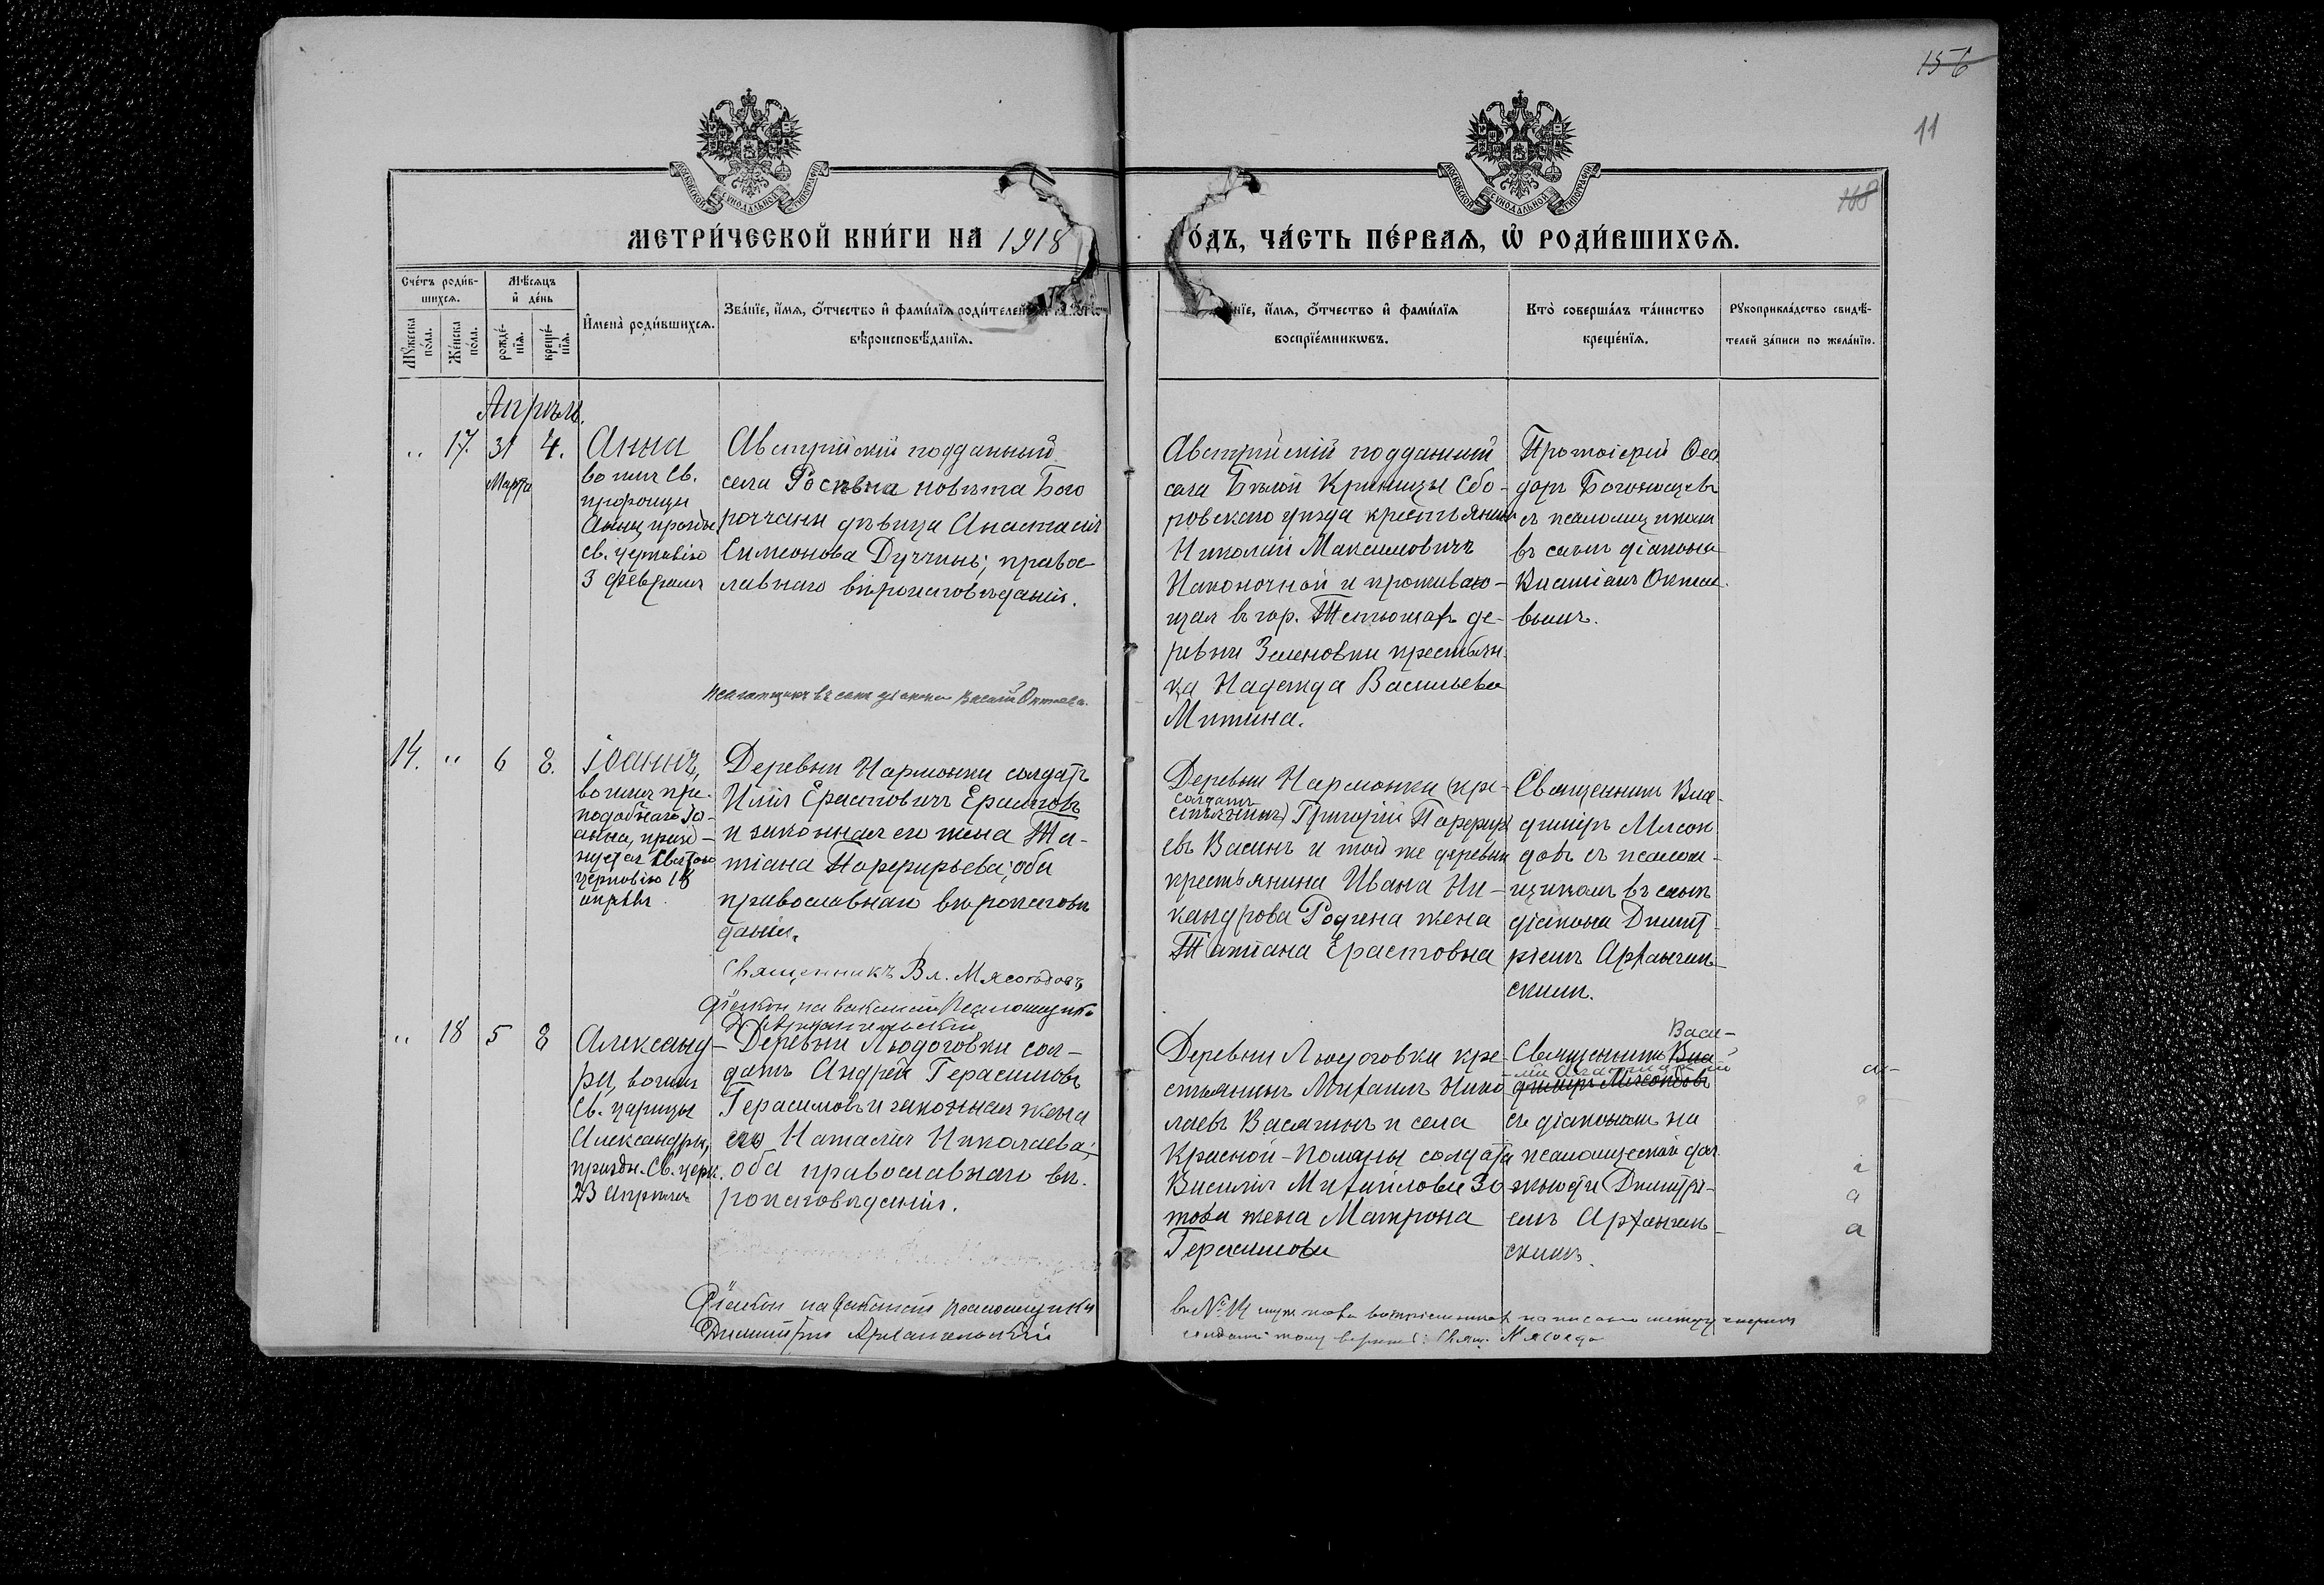 156
11
168
МОСКОВСКОЙ СѴНОДАЛЬНОЙ ТИПОГРАФІИ
МОСКОВСКОЙ СѴНОДАЛЬНОЙ ТИПОГРАФІИ
МЕТРИ́ЧЕСКОЙ КНИ́ГИ НА 1918
О́ДЪ, ЧА́СТЬ ПЕ́РВАЯ, Ѡ҆ РОДИ́ВШИХСЯ.
Сче́тъ роди́в-
шихся.
Мѣ́сяцъ
и҆ де́нь
Мꙋ́жеска по́ла.
Же́нска по́ла.
рожде́-
нїя.
креще́-
нїя.
И҆мена̀ роди́вшихся.
Зва́нїе, и҆́мя, ѻ҆́тчество и҆ фами́лїя роди́телей
вѣроисповѣ́данїя.
и҆́мя, ѻ҆́тчество и҆ фами́лїя
воспрїе́мникѡвъ.
Кто̀ соверша́лъ та́инство
креще́нїя.
Рꙋкоприкла́дство свидѣ́-
телей за́писи по жела́нїю.
Апрѣль.
„ 17. 31 4.
Марта
Анна
во имя св.
пророчицы
Анны праздн
св. церковію
3 февраля
Австрійскій подданный
села Росвьна повѣта Бого
роччани дѣвица Анастасія
Симеонова Дуччинъ; правос-
лавнаго вѣроисповѣданія.
псаломщикъ въ санѣ діакона Василій Октаевъ.
Австрійскій подданный
села Бѣлой Криницы Сбо-
ровскаго уѣзда крестьянинъ
Николай Максимовичъ
Наконочной и проживаю-
щая въ гор. Тетюшахъ де-
ревни Зеленовки крестьян-
ка Надежда Васильева
Митина.
Протоіерей Ѳео
доръ Богоносцевъ
съ псаломщикомъ
въ санѣ діакона
Василіемъ Октае
вымъ.
14. „ 6 8.
Іоаннъ,
во имя пре-
подобнаго Іо-
анна, празд-
нуемая Святою
церковію 18
апрѣля
Деревни Нармонки солдатъ
Илія Ерастовичъ Ерастовъ
и законная его жена Та-
тіана Порфирьева; оба
православнаго вѣроисповѣ
данія.
Священникъ Вл. Мясоѣдовъ
Діаконъ на вакансіи Псаломщика
Д. Архангельскій
Деревни Нармонки (кре-
солдатъ
стьянинъ) Григорій Порфирь
евъ Васинъ и той же деревни
крестьянина Ивана Ни-
кандрова Родина жена
Татіана Ерастовна
Священникъ Вла-
диміръ Мясоѣ
довъ съ псалом-
щикомъ въ санѣ
діакона Димит-
ріемъ Архангель-
скимъ.
„ 18 5 8
Александ-
ра, во имя
Св. царицы
Александры,
праздн. Св. церк.
23 Апрѣля
Деревни Людоговки сол-
датъ Андрей Герасимовъ
Герасимовъ и законная жена
его Наталія Николаева;
оба православнаго вѣ-
роисповѣданія.
Діаконъ на вакансіи псаломщика
Димитрій Архангельскій
Деревни Людоговки кре-
стьянинъ Михаилъ Нико
лаевъ Васягинъ и села
Красной-Поляны солдата
Василія Михайлова Зо
това жена Матрона
Герасимова
Васи-
Священникъ Вла-
диміръ Мясоѣдовъ
съ діакономъ на
псаломщеской дол
жности Димитрі-
емъ Архангель-
скимъ.
въ № 14 муж. пола воспріемникахъ написано между строкъ
солдатъ тому вѣрить: Свящ. Мясоѣдо